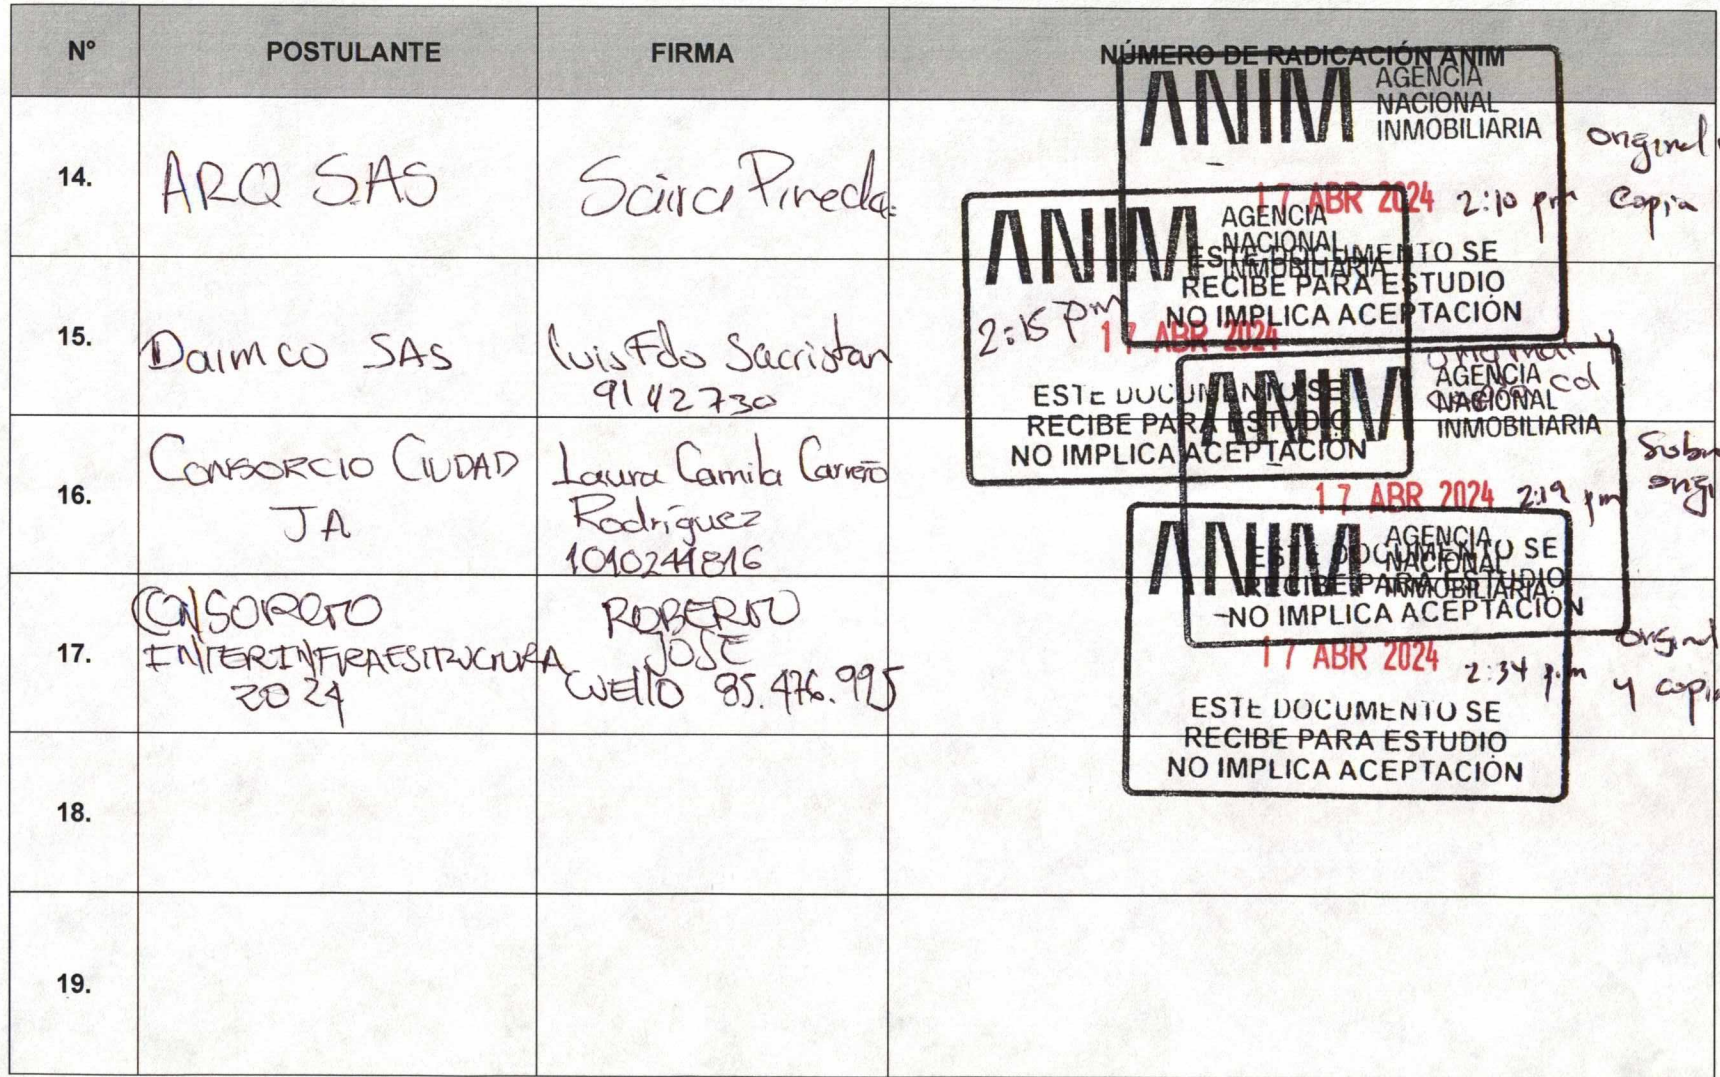 N° POSTULANTE FIRMA NÚMERO DE RADICACIÓN ANIM
14. ARQ SAS Saira Pineda
ANIM AGENCIA
NACIONAL
INMOBILIARIA
original
17 ABR 2024 2:10 pm copia
ESTE DOCUMENTO SE
RECIBE PARA ESTUDIO
NO IMPLICA ACEPTACIÓN
15. Daimco SAS Luis Fdo Sacristan
9142730
ANIM AGENCIA
NACIONAL
INMOBILIARIA
2:15 pm 17 ABR 2024
original y
cd
ESTE DOCUMENTO SE
RECIBE PARA ESTUDIO
NO IMPLICA ACEPTACIÓN
16. CONSORCIO CIUDAD
JA
Laura Camila Carreño
Rodríguez
1010241816
ANIM AGENCIA
NACIONAL
INMOBILIARIA
17 ABR 2024 2:19 pm
ESTE DOCUMENTO SE
RECIBE PARA ESTUDIO
NO IMPLICA ACEPTACIÓN
17. CONSORCIO
INTERINFRAESTRUCTURA
2024
ROBERTO
JOSE
CUELLO 85.476.995
ANIM AGENCIA
NACIONAL
INMOBILIARIA
17 ABR 2024 2:34 p.m
original
y copia
ESTE DOCUMENTO SE
RECIBE PARA ESTUDIO
NO IMPLICA ACEPTACIÓN
18.
19.